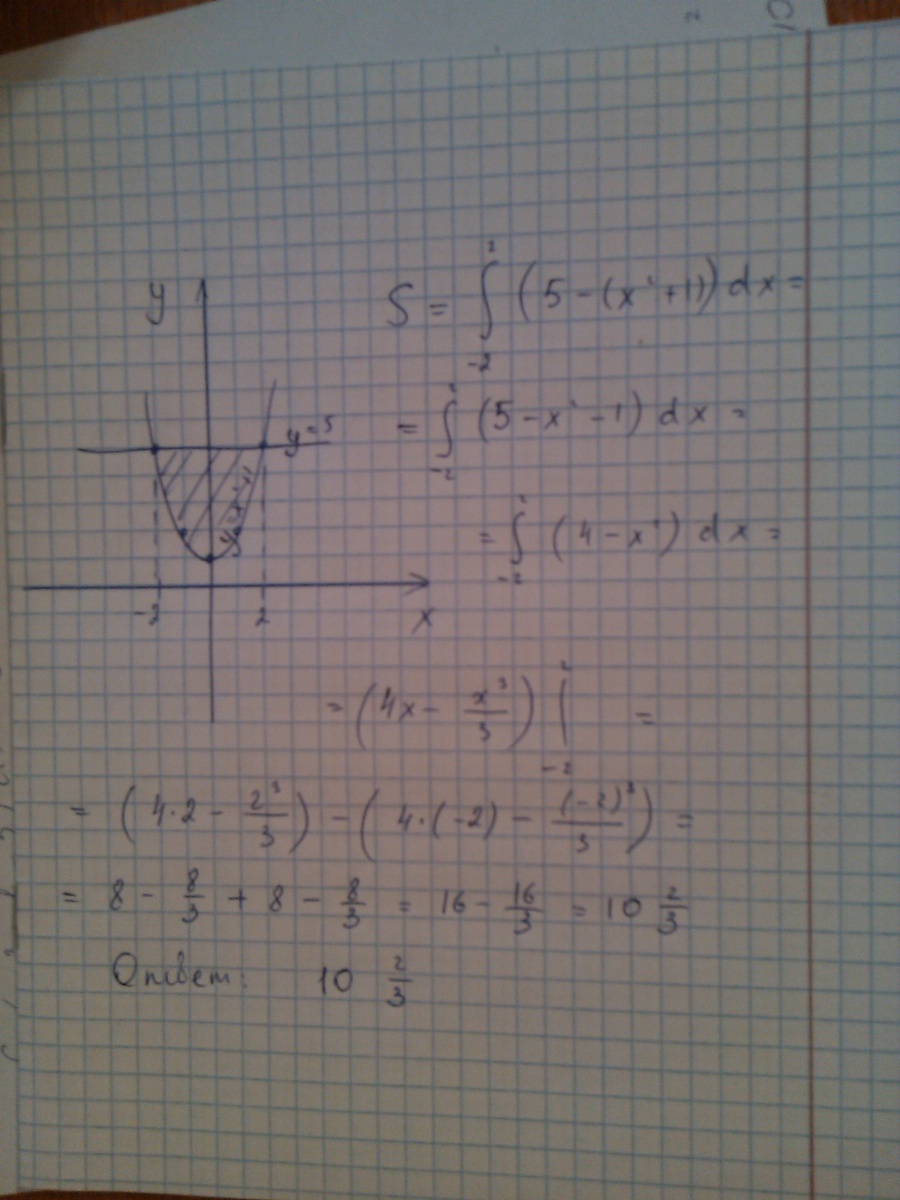 y
S = ∫₋₂² (5 - (x² + 1)) dx =
= ∫₋₂² (5 - x² - 1) dx =
y = 5
y = x² + 1
= ∫₋₂² (4 - x²) dx =
-2 2 x
= (4x - x³/3) |₋₂² =
= (4·2 - 2³/3) - (4·(-2) - (-2)³/3) =
= 8 - 8/3 + 8 - 8/3 = 16 - 16/3 = 10 2/3
Ответ: 10 2/3